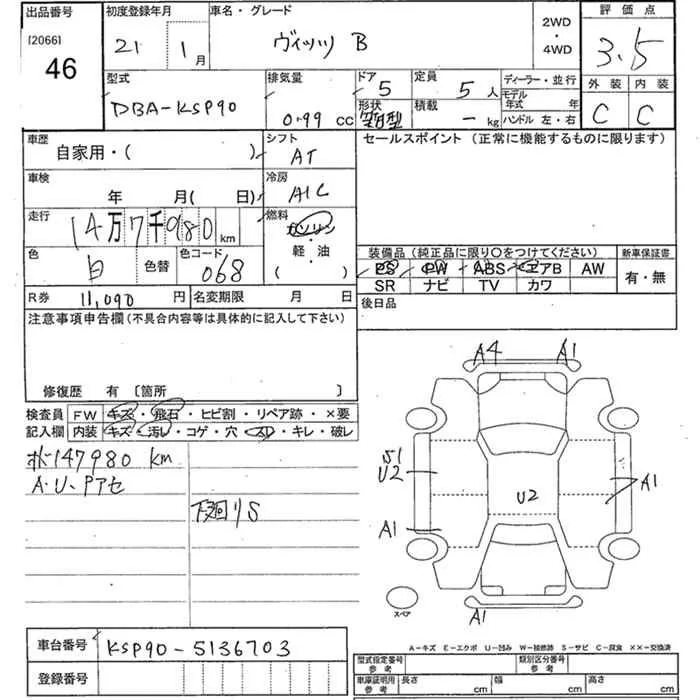 出品番号 初度登録年月 車名・グレード 2WD・4WD 評価点
[2066] 46 21 1月 ヴィッツ B 3.5
型式 排気量 ドア 5 定員 5人 ディーラー・並行 外装 内装
DBA-KSP90 0.99 cc 形状 積載 - kg モデル年式 年 C C
ハンドル 左・右
車歴 シフト セールスポイント (正常に機能するものに限ります)
自家用・( ) AT
車検 冷房
年 月( 日) A/C
走行 燃料
14万7千980 km ガソリン・軽・油
色 色替 色コード ( ) 装備品 (純正品に限り○をつけてください) 新車保証書
白 068 PS PW ABS エアB AW 有・無
SR ナビ TV カワ
R券 11,090 円 名変期限 月 日 後日品
注意事項申告欄 (不具合内容等は具体的に記入して下さい)
修復歴 有 〔箇所 〕
検査員 FW キズ・飛石・ヒビ割・リペア跡・×要
記入欄 内装 キズ・汚レ・コゲ・穴・スレ・キレ・破レ
147980 km
A・U、Pアセ
下廻りS
A4 A1
S1
U2 U2 A1
A1
スペア A1
車台番号 KSP90-5136703
登録番号
A-キズ E-エクボ U-凹み W-補修跡 S-サビ C-腐食 XX-交換済
型式指定番号 参考 類別区分番号 参考
車庫証明用 参考 長さ cm 幅 cm 高さ cm